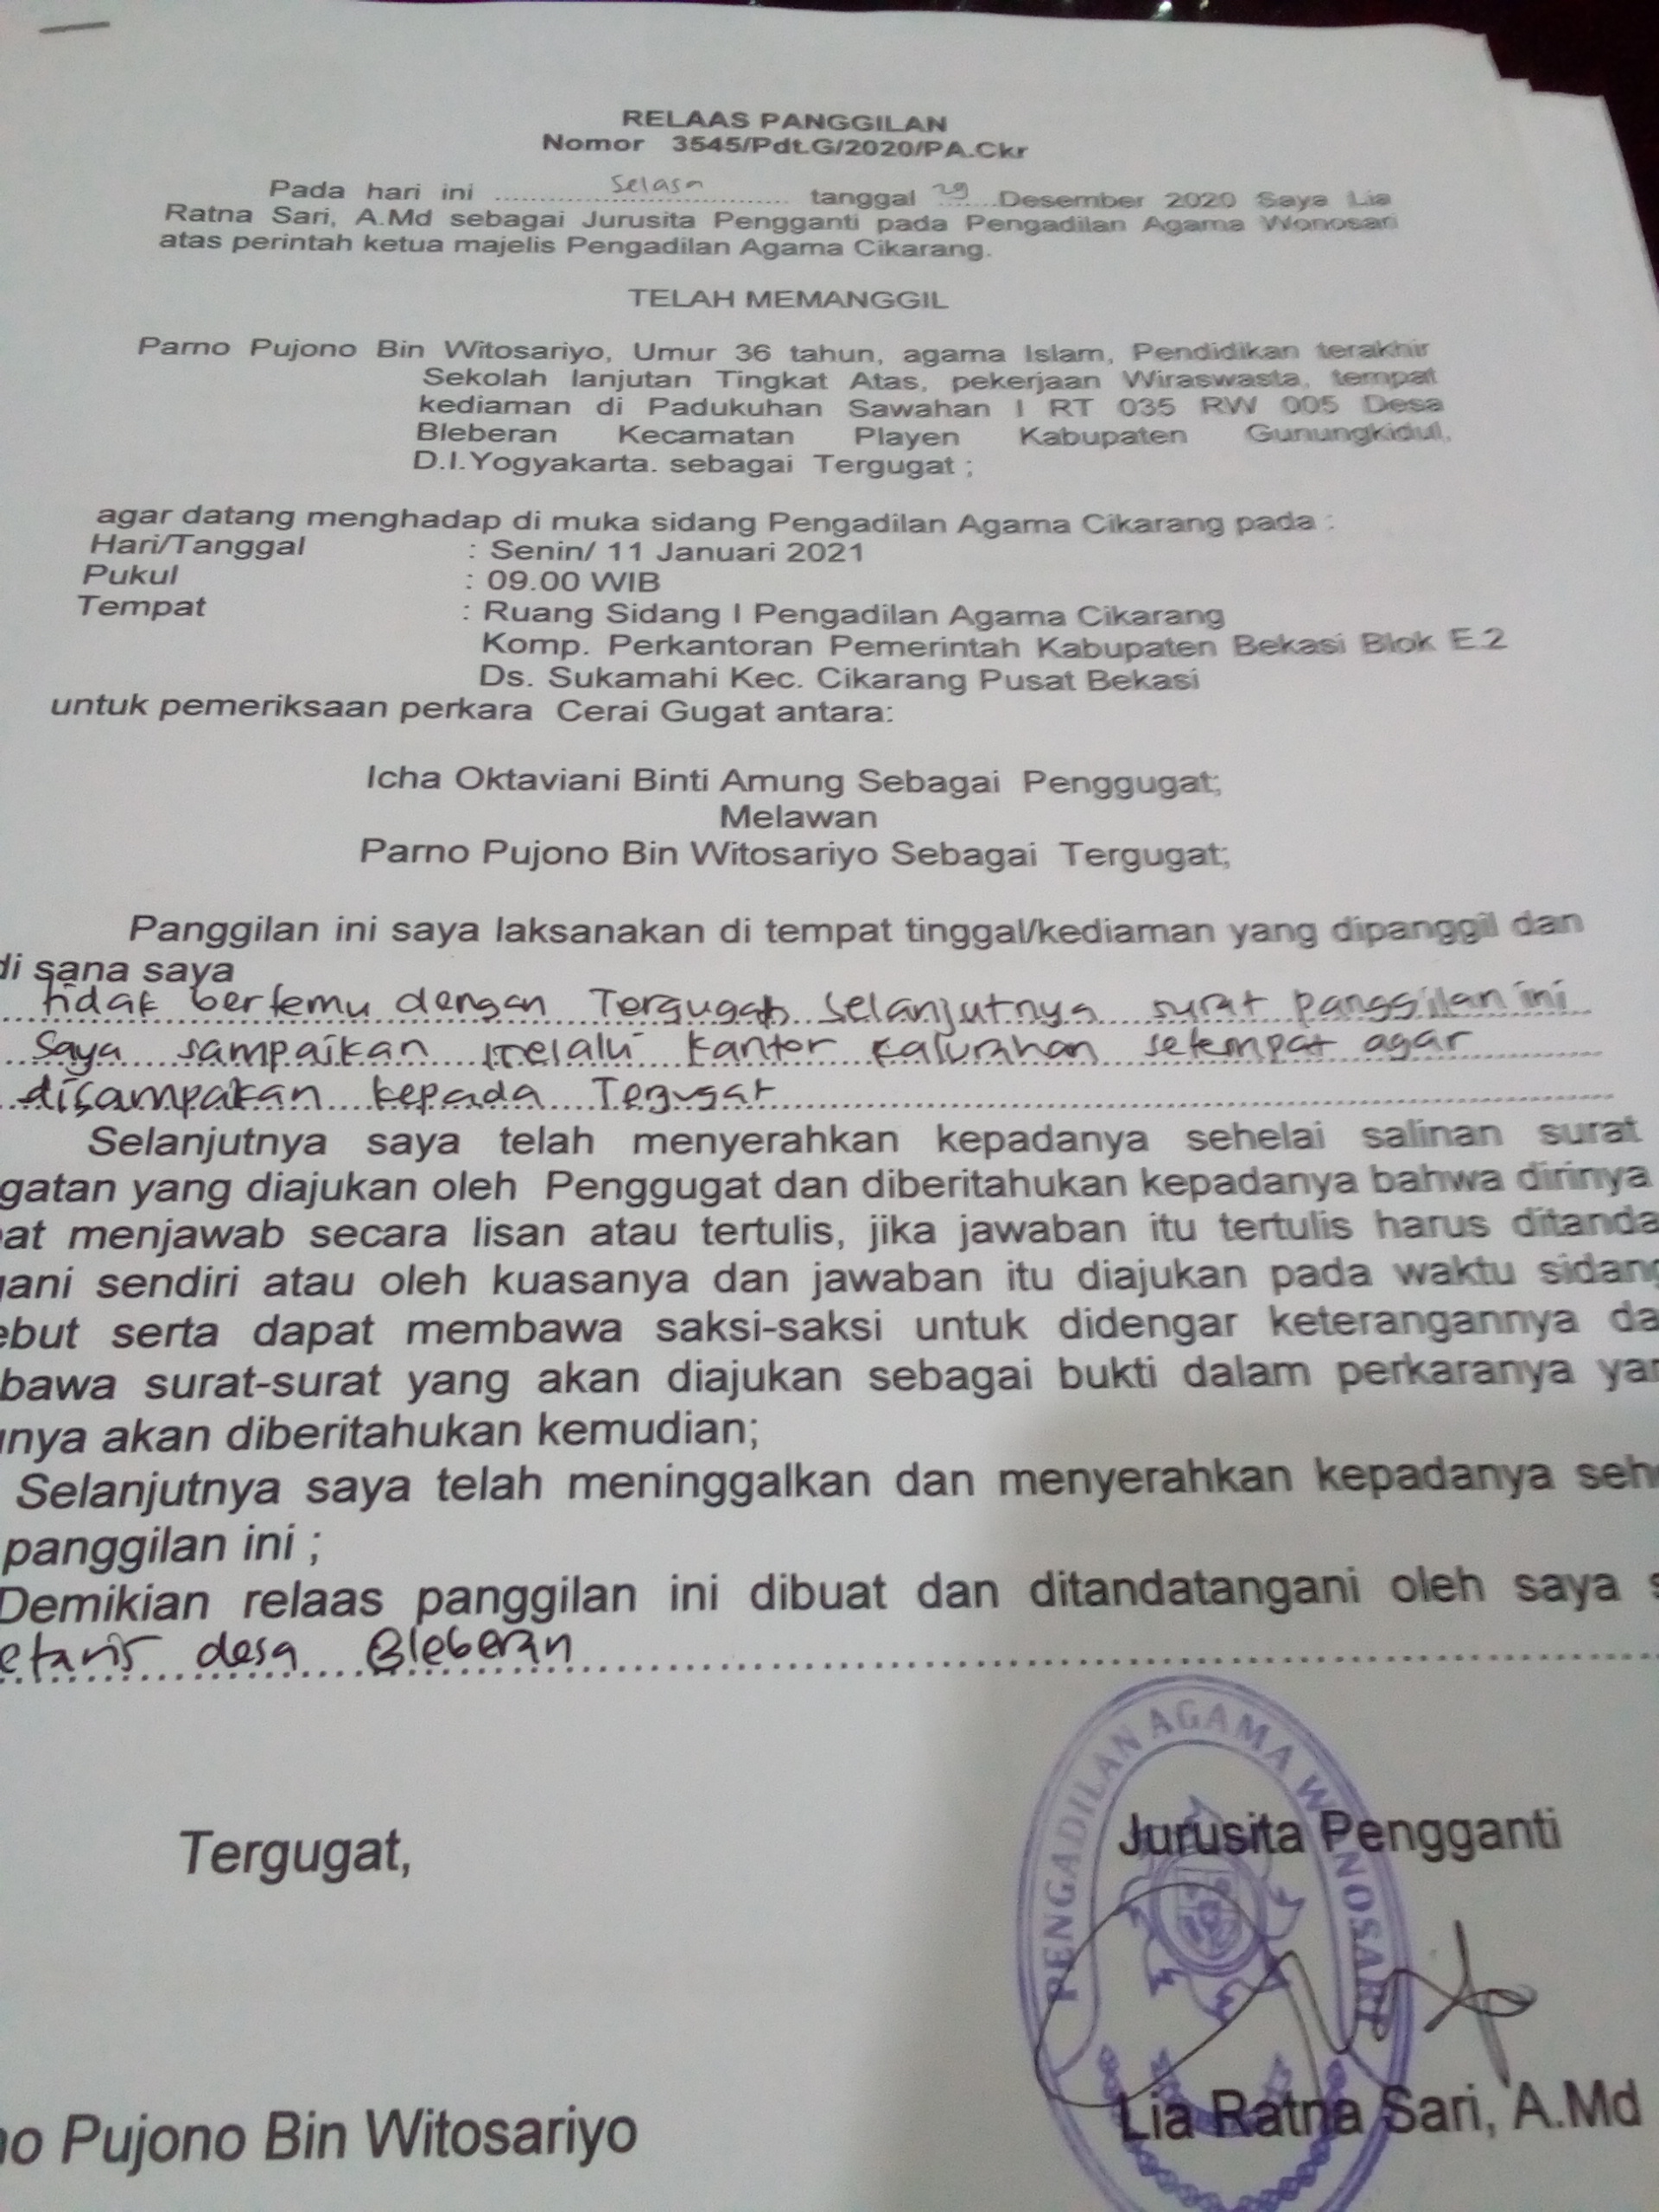 RELAAS PANGGILAN
Nomor 3545/Pdt.G/2020/PA.Ckr
Pada hari ini ........Selasa........ tanggal 29 Desember 2020 Saya Lia
Ratna Sari, A.Md sebagai Jurusita Pengganti pada Pengadilan Agama Wonosari
atas perintah ketua majelis Pengadilan Agama Cikarang.
TELAH MEMANGGIL
Parno Pujono Bin Witosariyo, Umur 36 tahun, agama Islam, Pendidikan terakhir
Sekolah lanjutan Tingkat Atas, pekerjaan Wiraswasta, tempat
kediaman di Padukuhan Sawahan I RT 035 RW 005 Desa
Bleberan Kecamatan Playen Kabupaten Gunungkidul,
D.I.Yogyakarta. sebagai Tergugat ;
agar datang menghadap di muka sidang Pengadilan Agama Cikarang pada :
Hari/Tanggal : Senin/ 11 Januari 2021
Pukul : 09.00 WIB
Tempat : Ruang Sidang I Pengadilan Agama Cikarang
Komp. Perkantoran Pemerintah Kabupaten Bekasi Blok E.2
Ds. Sukamahi Kec. Cikarang Pusat Bekasi
untuk pemeriksaan perkara Cerai Gugat antara:
Icha Oktaviani Binti Amung Sebagai Penggugat;
Melawan
Parno Pujono Bin Witosariyo Sebagai Tergugat;
Panggilan ini saya laksanakan di tempat tinggal/kediaman yang dipanggil dan
di sana saya
tidak bertemu dengan Tergugat selanjutnya surat panggilan ini
saya sampaikan melalui kantor kalurahan setempat agar
disampakan kepada Tergugat
Selanjutnya saya telah menyerahkan kepadanya sehelai salinan surat
gatan yang diajukan oleh Penggugat dan diberitahukan kepadanya bahwa dirinya
at menjawab secara lisan atau tertulis, jika jawaban itu tertulis harus ditanda
gani sendiri atau oleh kuasanya dan jawaban itu diajukan pada waktu sidang
ebut serta dapat membawa saksi-saksi untuk didengar keterangannya da
bawa surat-surat yang akan diajukan sebagai bukti dalam perkaranya yan
nya akan diberitahukan kemudian;
Selanjutnya saya telah meninggalkan dan menyerahkan kepadanya sehe
panggilan ini ;
Demikian relaas panggilan ini dibuat dan ditandatangani oleh saya s
etaris desa Bleberan
Tergugat,
Jurusita Pengganti
PENGADILAN AGAMA WONOSARI
no Pujono Bin Witosariyo
Lia Ratna Sari, A.Md